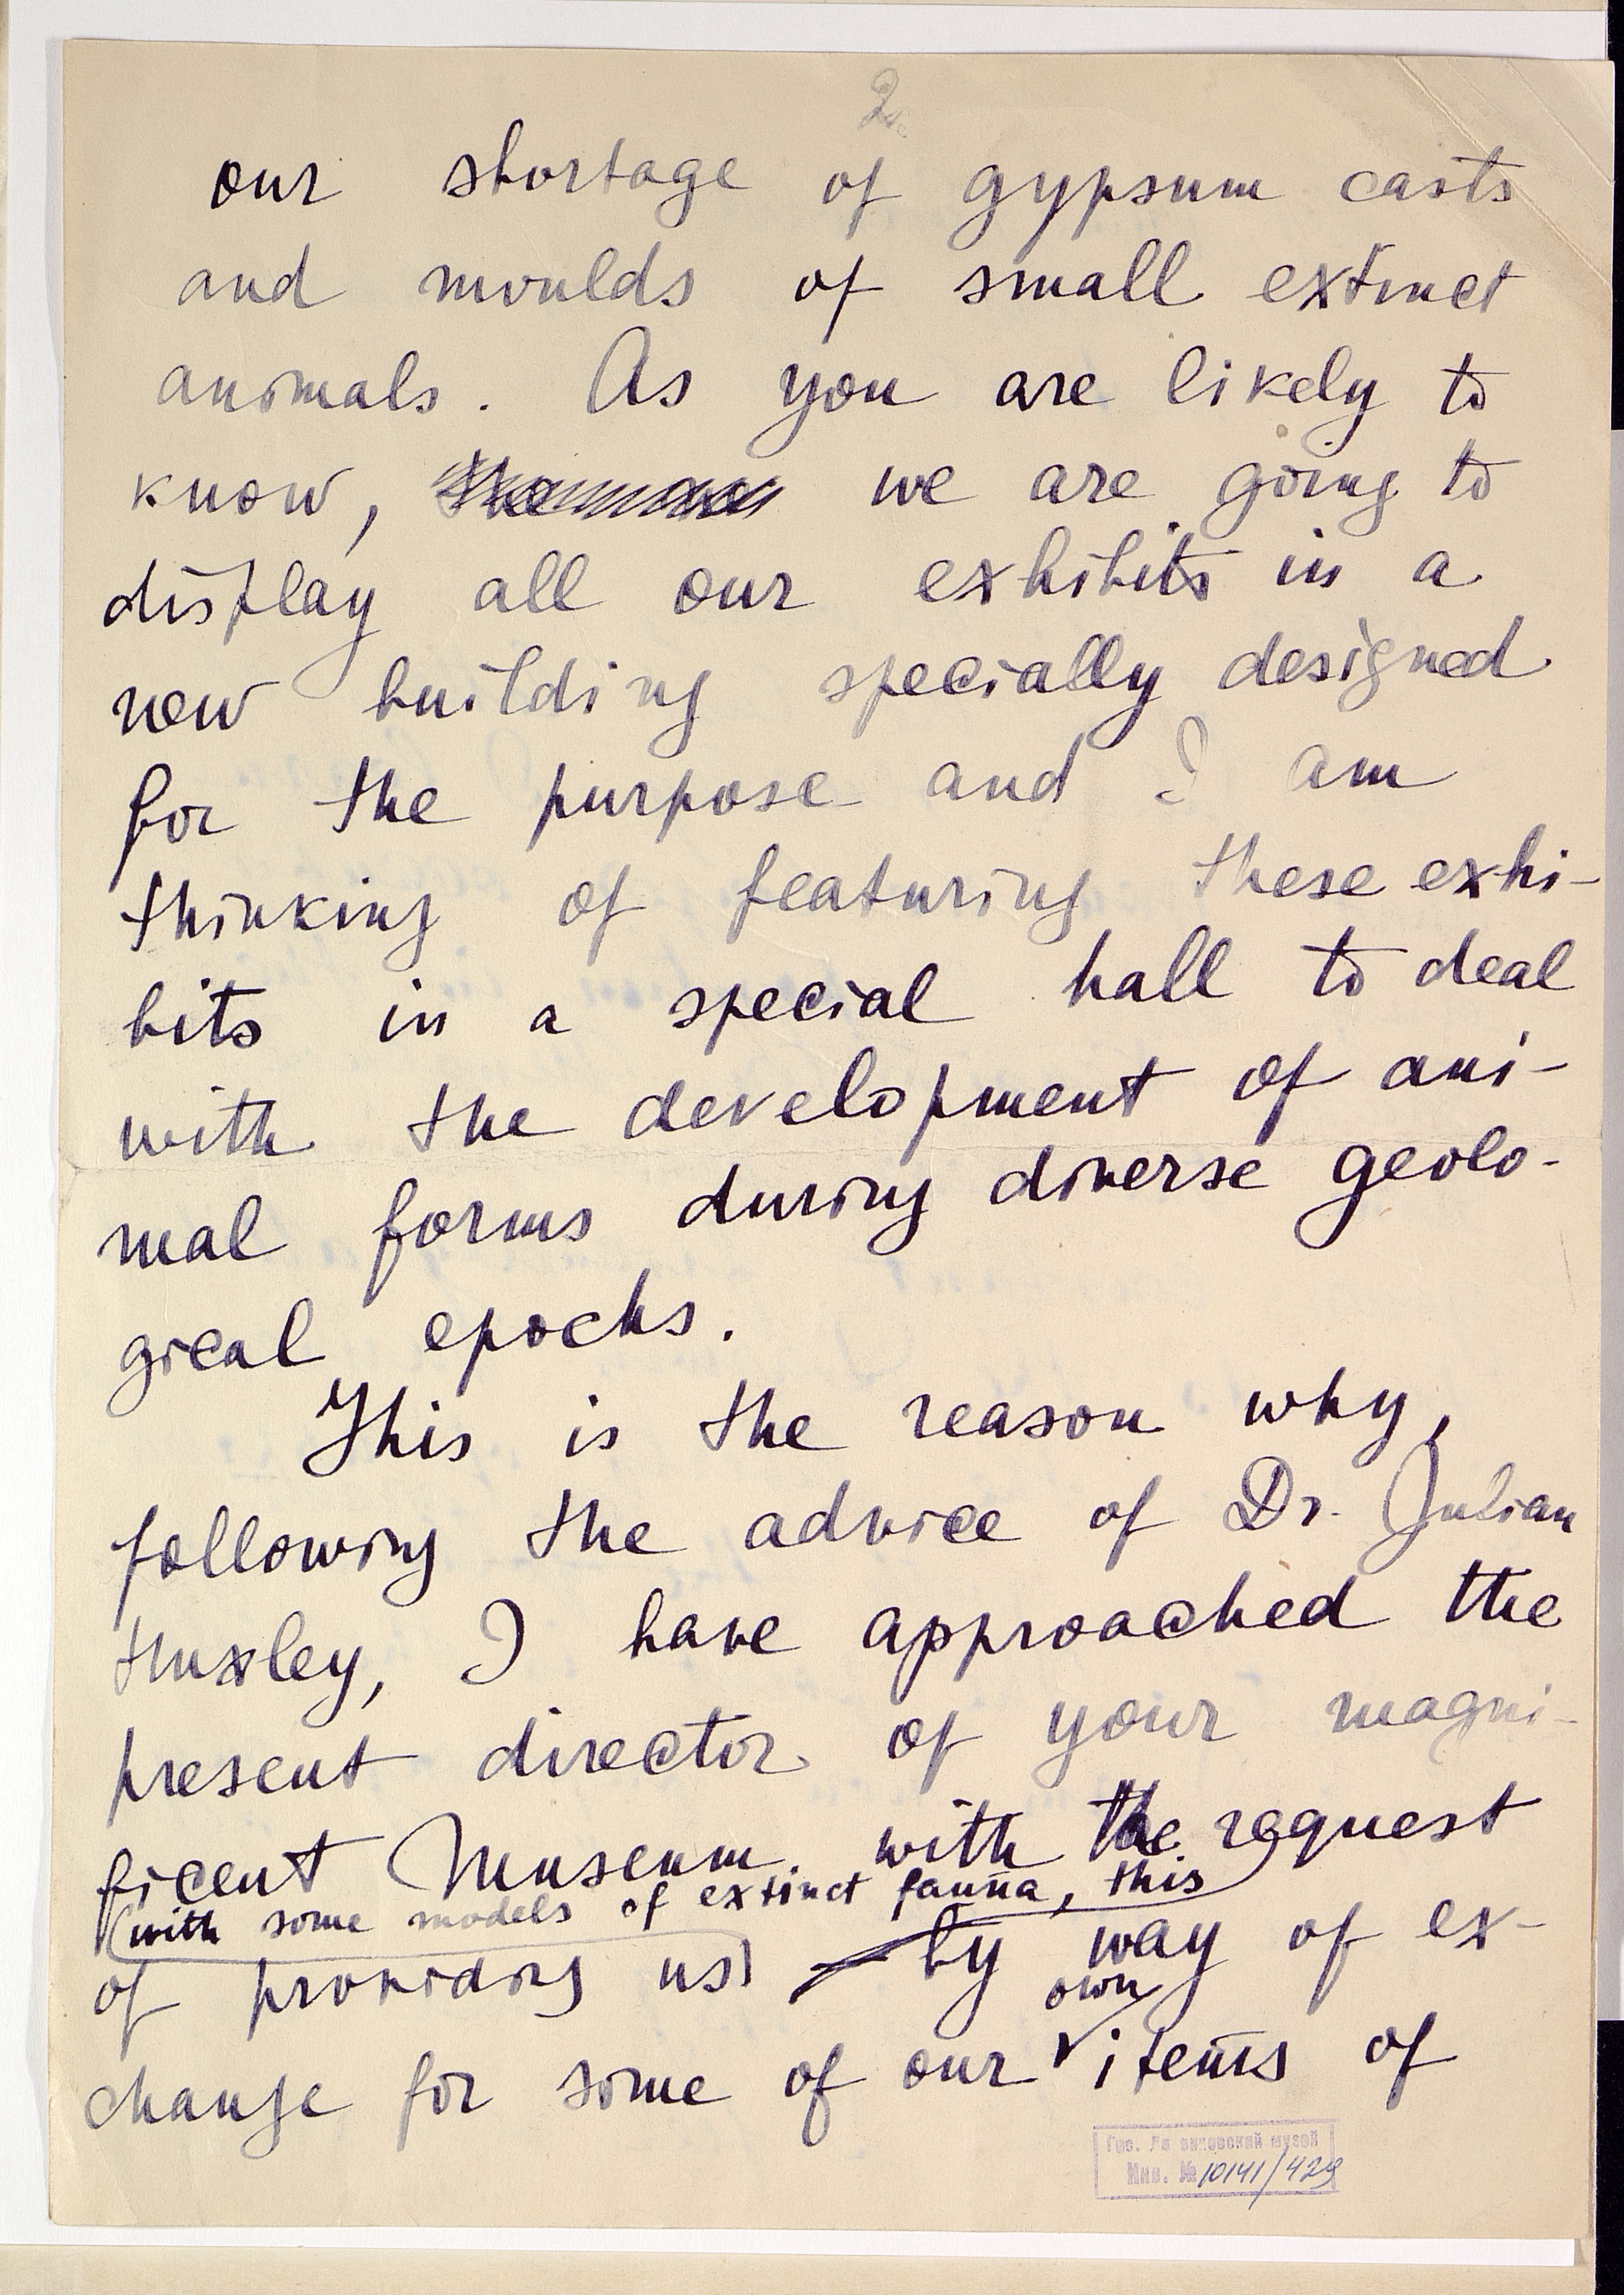 2.
our shortage of gypsum casts
and moulds of small extinct
animals. As you are likely to
know, we are going to
display all our exhibits in a
new building specially designed
for the purpose and I am
thinking of featuring these exhi-
bits in a special hall to deal
with the development of ani-
mal forms during diverse geolo-
gical epochs.
This is the reason why,
following the advice of Dr. Julian
Huxley, I have approached the
present director of your magni-
ficent Museum with the request
(with some models of extinct fauna, this
of providing us) by way of ex-
own
change for some of our items of
Гос. Дарвиновский музей
Инв. № 10141/429